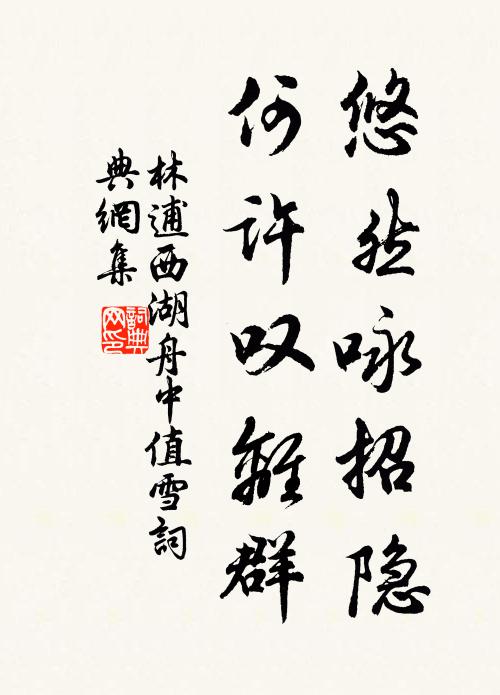 悠然咏招隐
何许叹離群
林逋西湖舟中值雪詞
典網集
詞典
网印